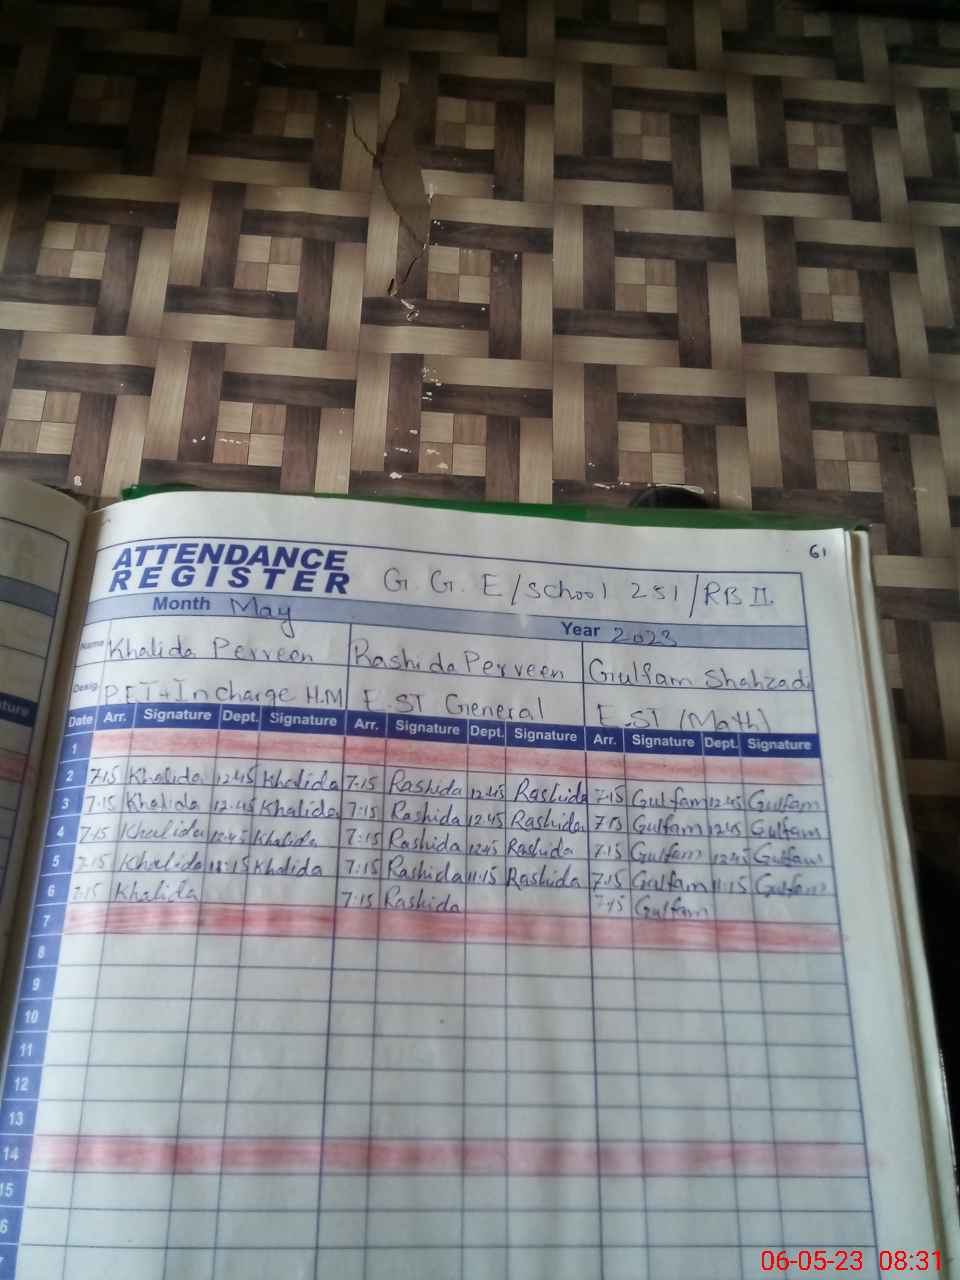 61
ATTENDANCE
REGISTER G. G. E/School 251/RB II.
Month May Year 2023
Name Khalida Perveen Rashida Perveen Gulfam Shahzadi
Desig. P.ET+Incharge H.M E.ST General E.ST (Math)
Date Arr. Signature Dept. Signature Arr. Signature Dept. Signature Arr. Signature Dept. Signature
1
2 7:15 Khalida 12:45 Khalida 7:15 Rashida 12:45 Rashida 7:15 Gulfam 12:45 Gulfam
3 7:15 Khalida 12:45 Khalida 7:15 Rashida 12:45 Rashida 7:15 Gulfam 12:45 Gulfam
4 7:15 Khalida 12:45 Khalida 7:15 Rashida 12:45 Rashida 7:15 Gulfam 12:45 Gulfam
5 7:15 Khalida 11:15 Khalida 7:15 Rashida 11:15 Rashida 7:15 Gulfam 11:15 Gulfam
6 7:15 Khalida 7:15 Rashida 7:15 Gulfam
7
8
9
10
11
12
13
14
15
06-05-23 08:31